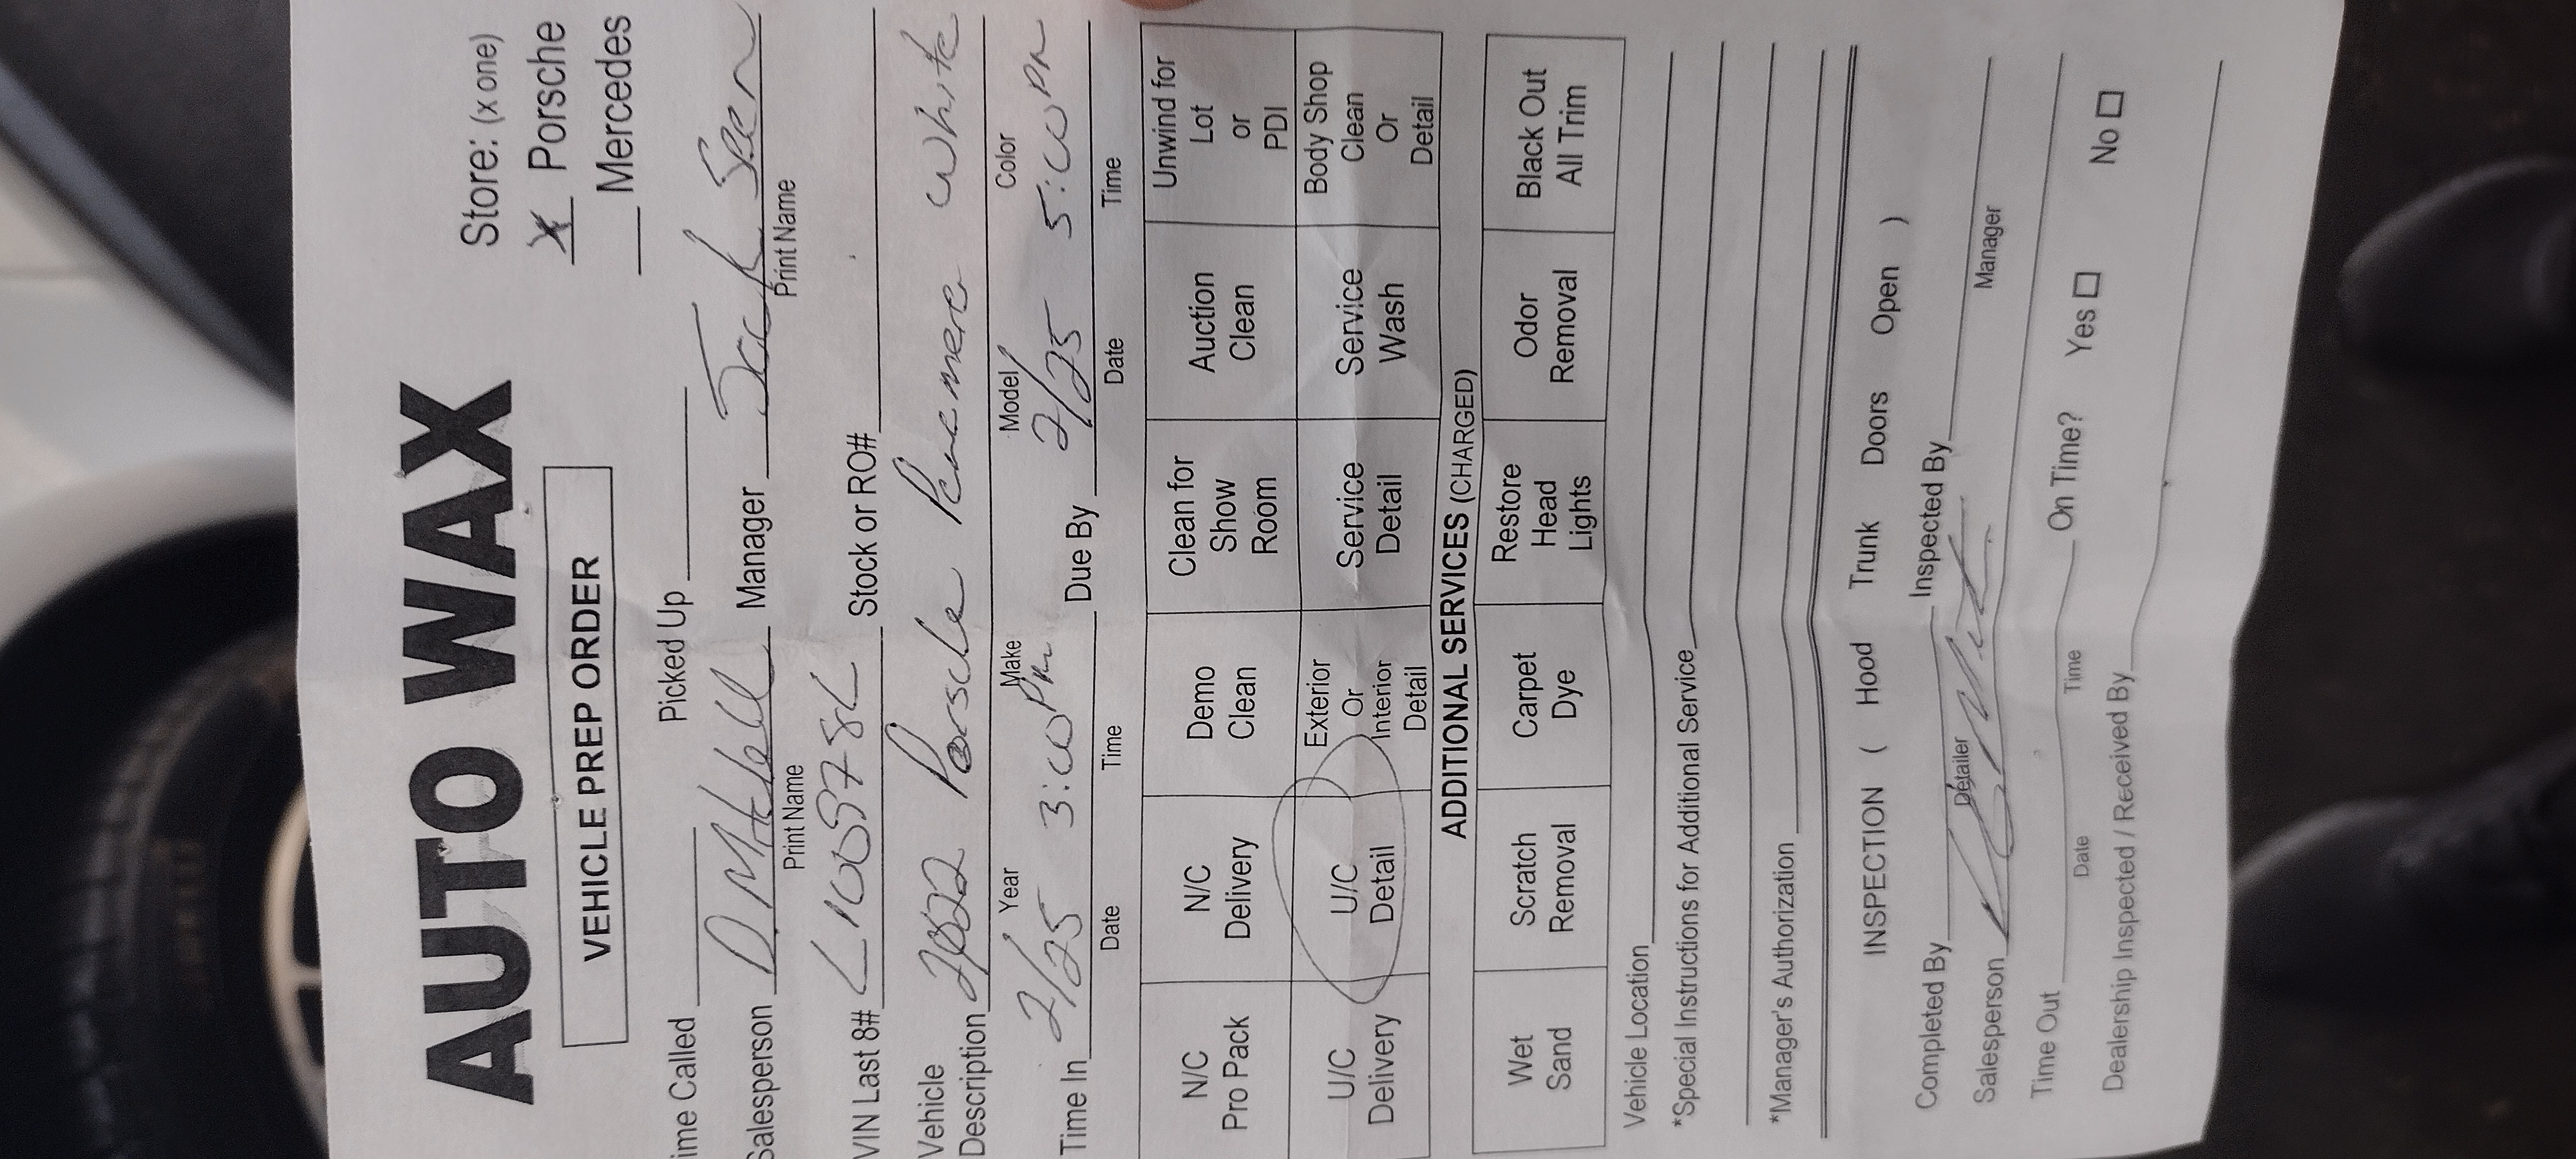 AUTO WAX
Store: (x one)
X Porsche
Mercedes
VEHICLE PREP ORDER
ime Called Picked Up
Salesperson Manager Jack
Print Name Print Name
VIN Last 8# Stock or RO#
Vehicle
Description 2022 Porsche White
Year Make Model Color
Time In 2/25 3:00 PM Due By 2/25 5:00 PM
Date Time Date Time
N/C Pro Pack
N/C Delivery
Demo Clean
Clean for Show Room
Auction Clean
Unwind for Lot or PDI
U/C Delivery
U/C Detail
Exterior Or Interior Detail
Service Detail
Service Wash
Body Shop Clean Or Detail
ADDITIONAL SERVICES (CHARGED)
Wet Sand
Scratch Removal
Carpet Dye
Restore Head Lights
Odor Removal
Black Out All Trim
Vehicle Location
*Special Instructions for Additional Service
*Manager's Authorization
INSPECTION ( Hood Trunk Doors Open )
Completed By Inspected By
Detailer Manager
Salesperson
Time Out On Time? Yes No
Date Time
Dealership Inspected / Received By